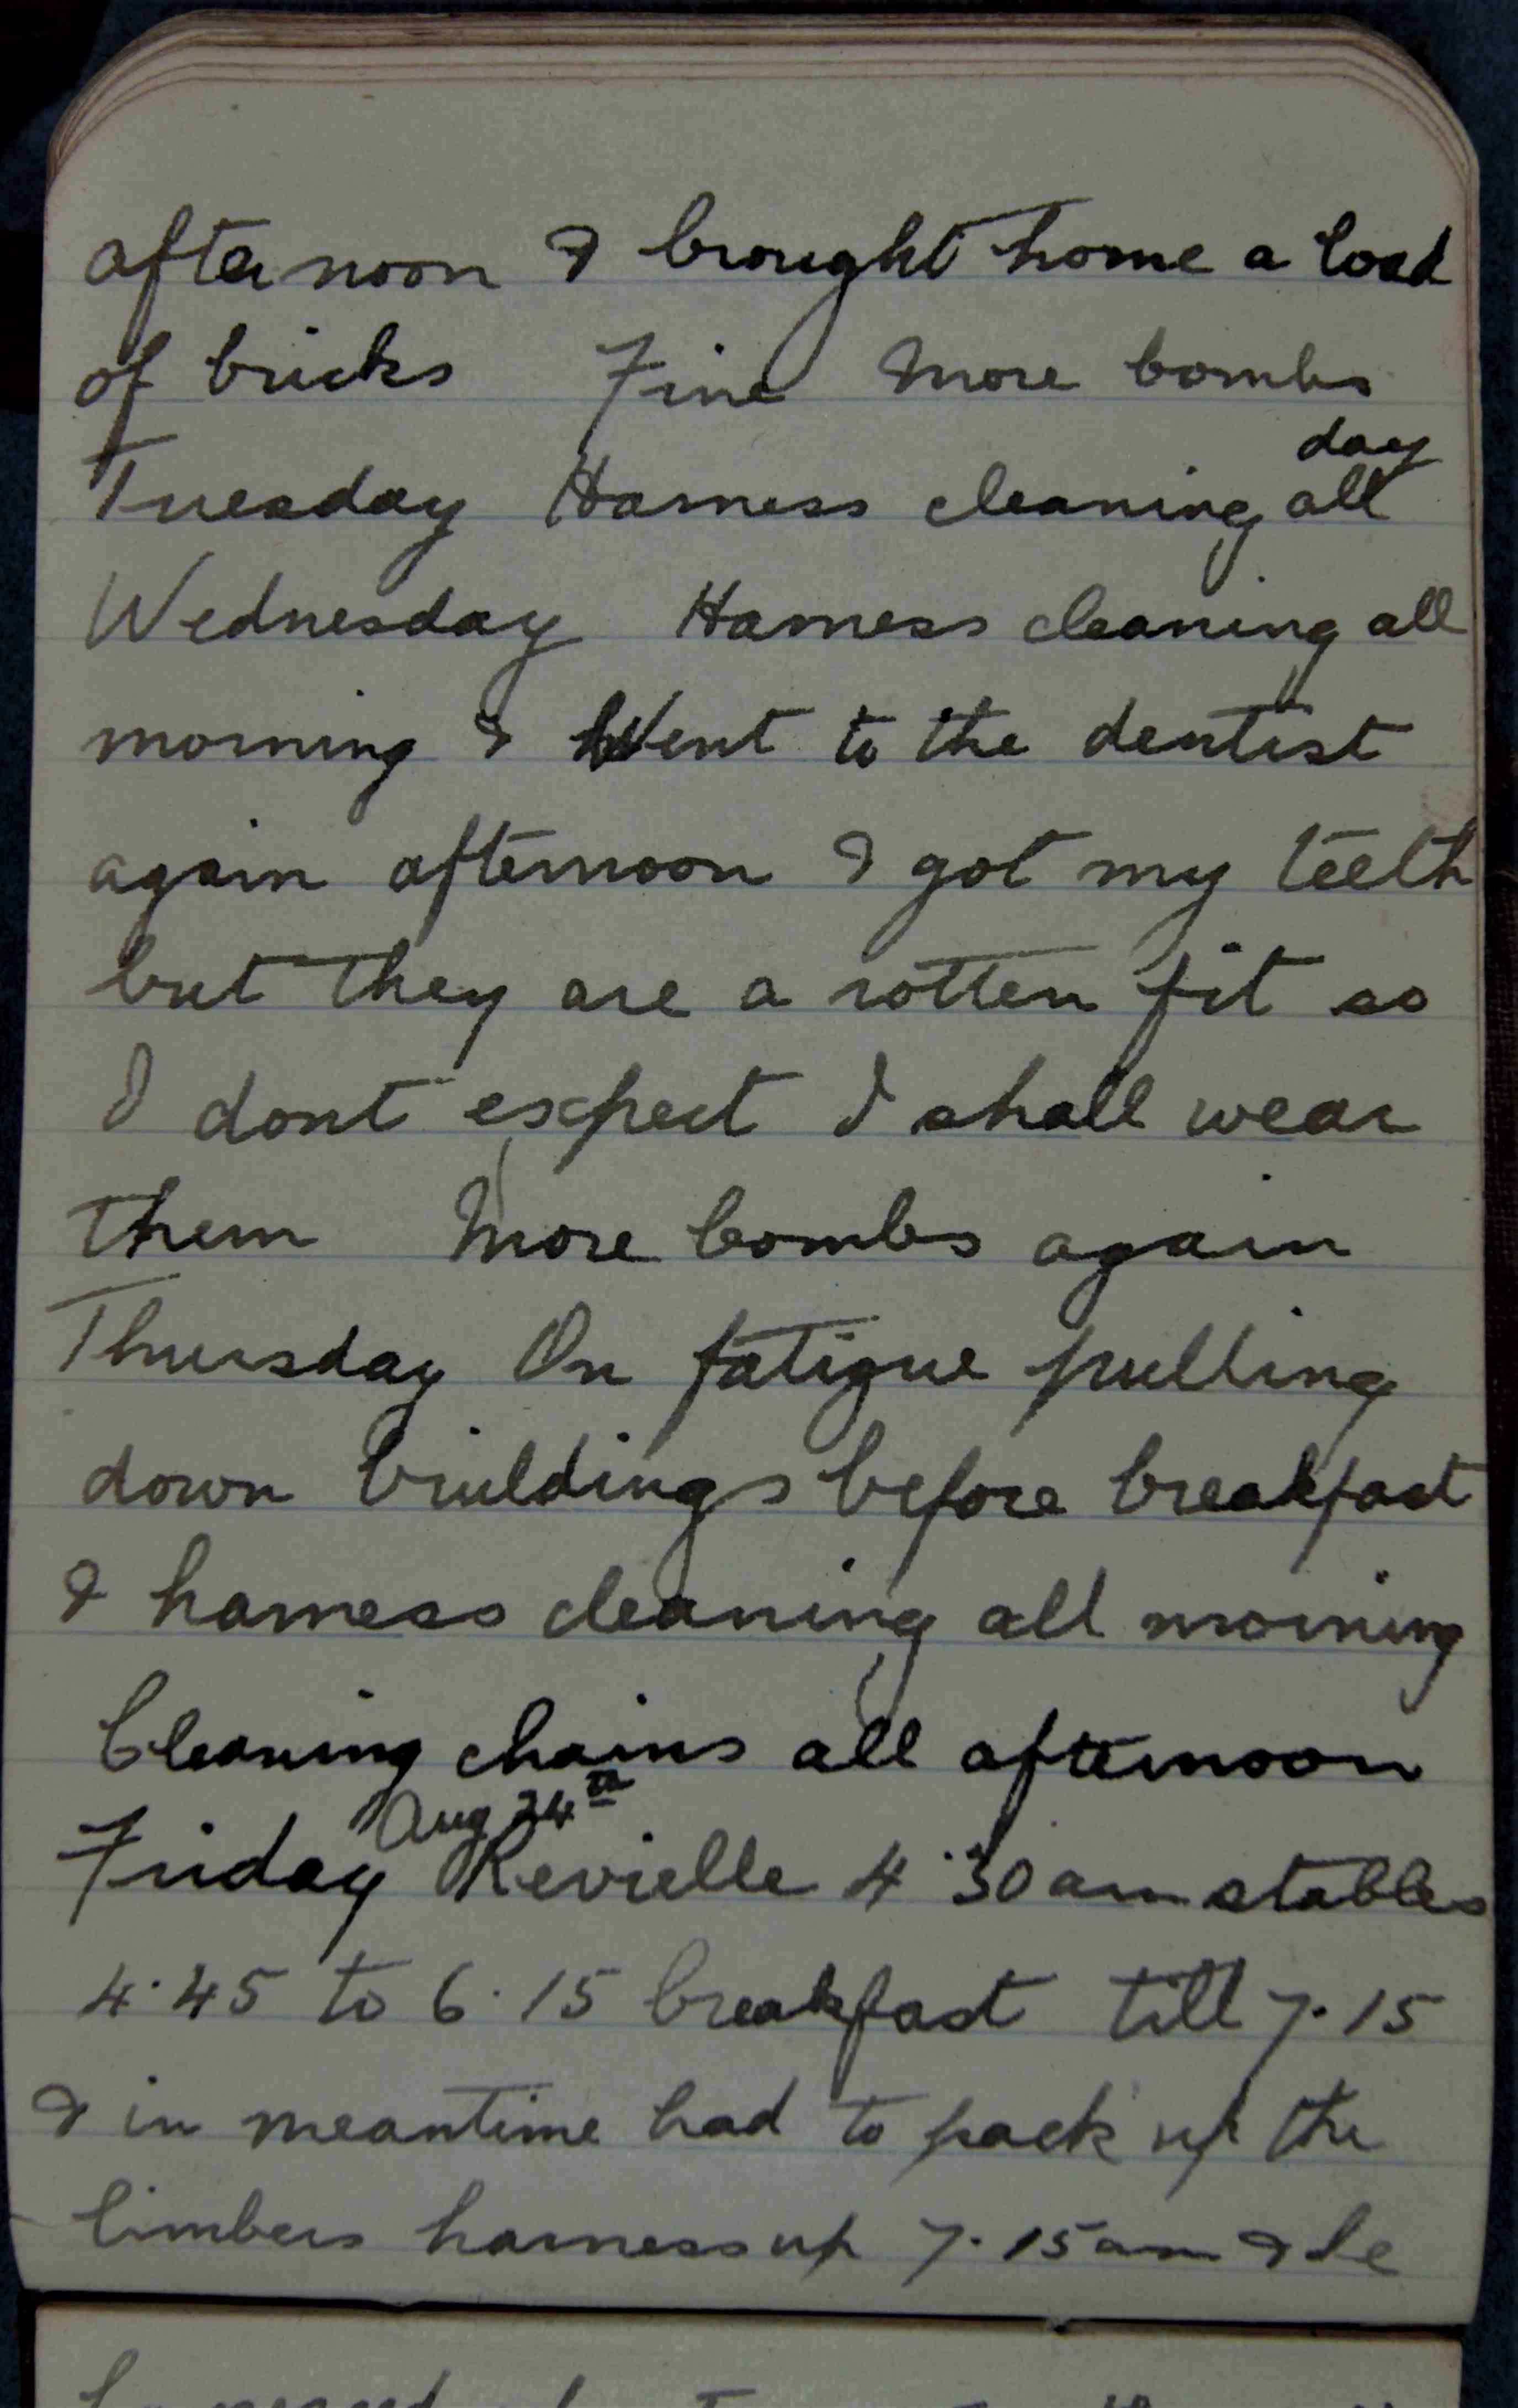 afternoon & brought home a load
of bricks Fine More bombs
day
Tuesday Harness cleaning all
Wednesday Harness cleaning all
morning & Went to the dentist
again afternoon & got my teeth
but they are a rotten fit so
I dont expect I shall wear
them More bombs again
Thursday On fatigue pulling
down buildings before breakfast
& harness cleaning all morning
Cleaning chains all afternoon
Aug 24th
Friday Revielle 4.30 am stables
4.45 to 6.15 breakfast till 7.15
& in meantime had to pack up the
limbers harness up 7.15 am & be